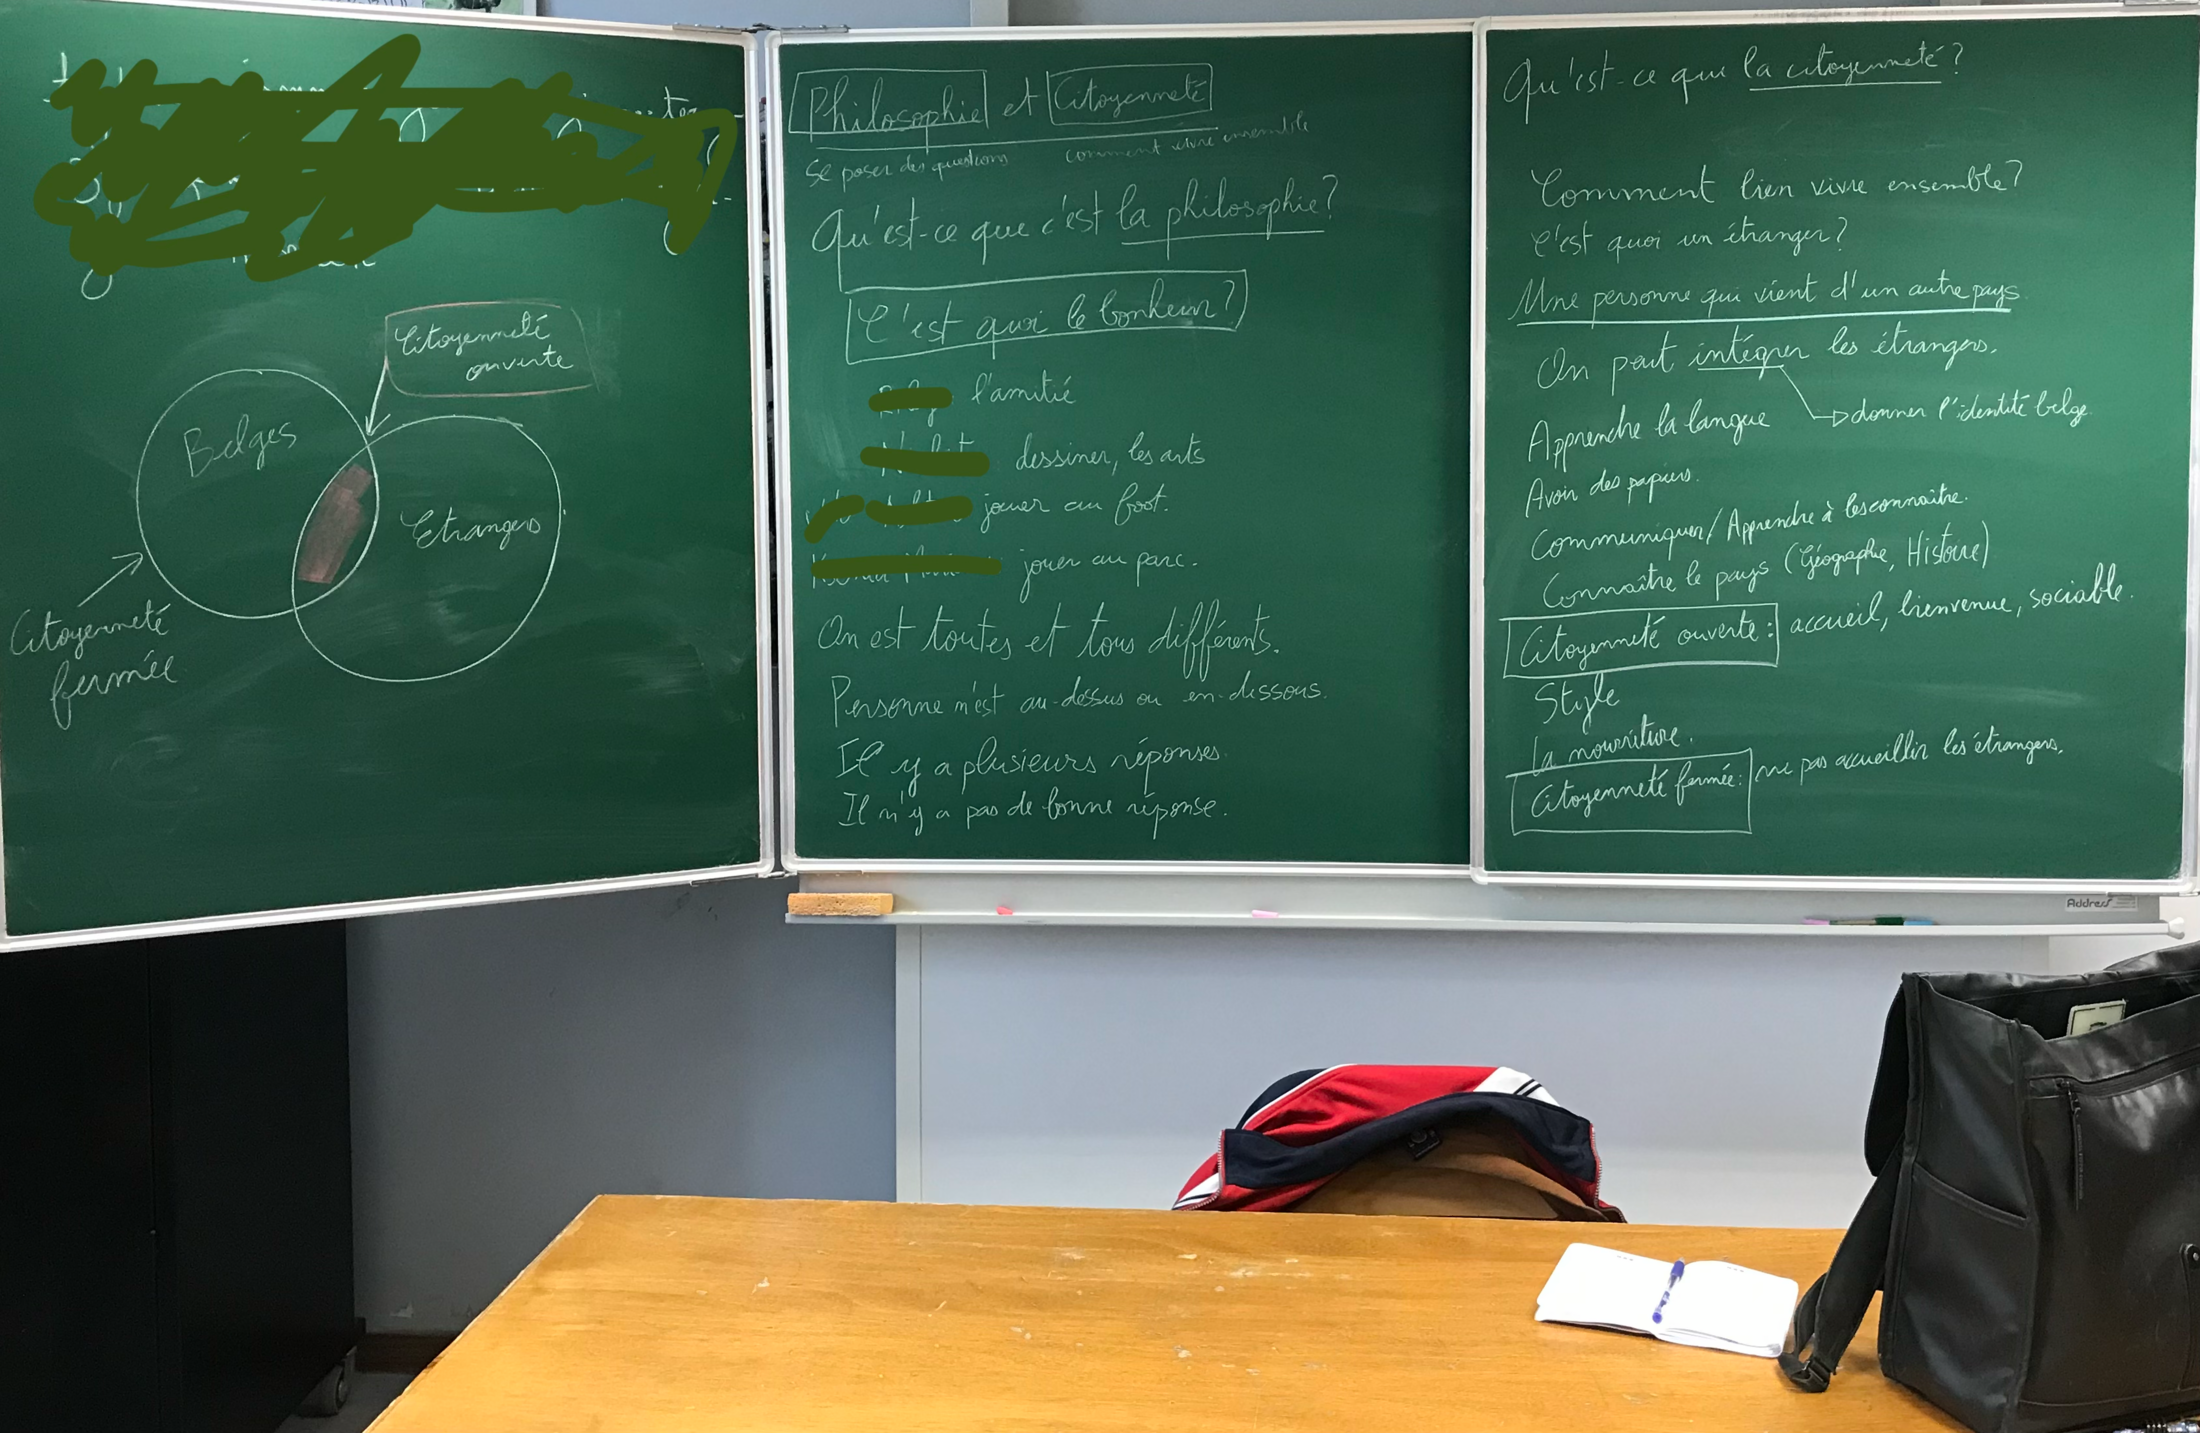 Citoyenneté
ouverte
Belges
Etrangers
Citoyenneté
fermée
Philosophie et Citoyenneté
se poser des questions comment vivre ensemble
Qu'est-ce que c'est la philosophie?
C'est quoi le bonheur?
l'amitié
dessiner, les arts
jouer au foot.
jouer au parc.
On est toutes et tous différents.
Personne n'est au-dessus ou en-dessous.
Il y a plusieurs réponses.
Il n'y a pas de bonne réponse.
Qu'est-ce que la citoyenneté?
Comment bien vivre ensemble?
C'est quoi un étranger?
Une personne qui vient d'un autre pays
On peut intégrer les étrangers.
Apprendre la langue → donner l'identité belge
Avoir des papiers.
Communiquer/Apprendre à les connaître.
Connaître le pays (Géographie, Histoire)
Citoyenneté ouverte: accueil, bienvenue, sociable.
Style
La nourriture.
Citoyenneté fermée: ne pas accueillir les étrangers.
Address